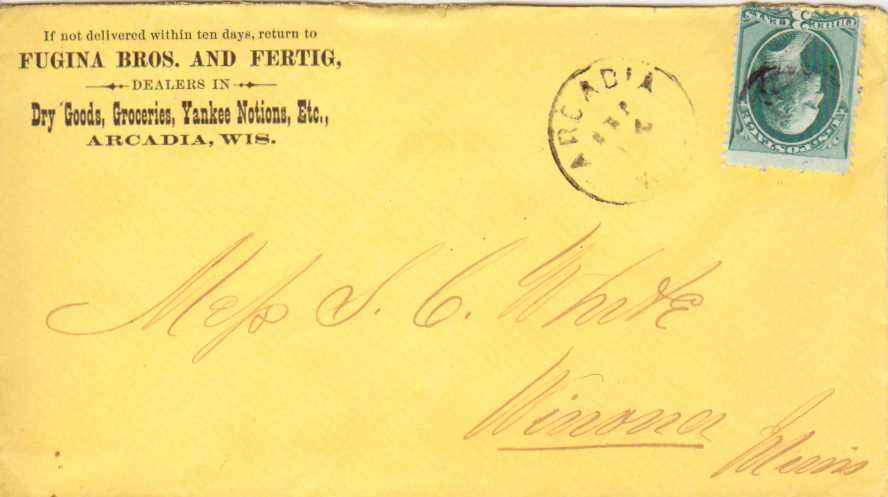 If not delivered within ten days, return to
FUGINA BROS. AND FERTIG,
DEALERS IN
Dry Goods, Groceries, Yankee Notions, Etc.,
ARCADIA, WIS.
ARCADIA
U.S. POSTAGE
Mess S. C. White
Winona
Minn